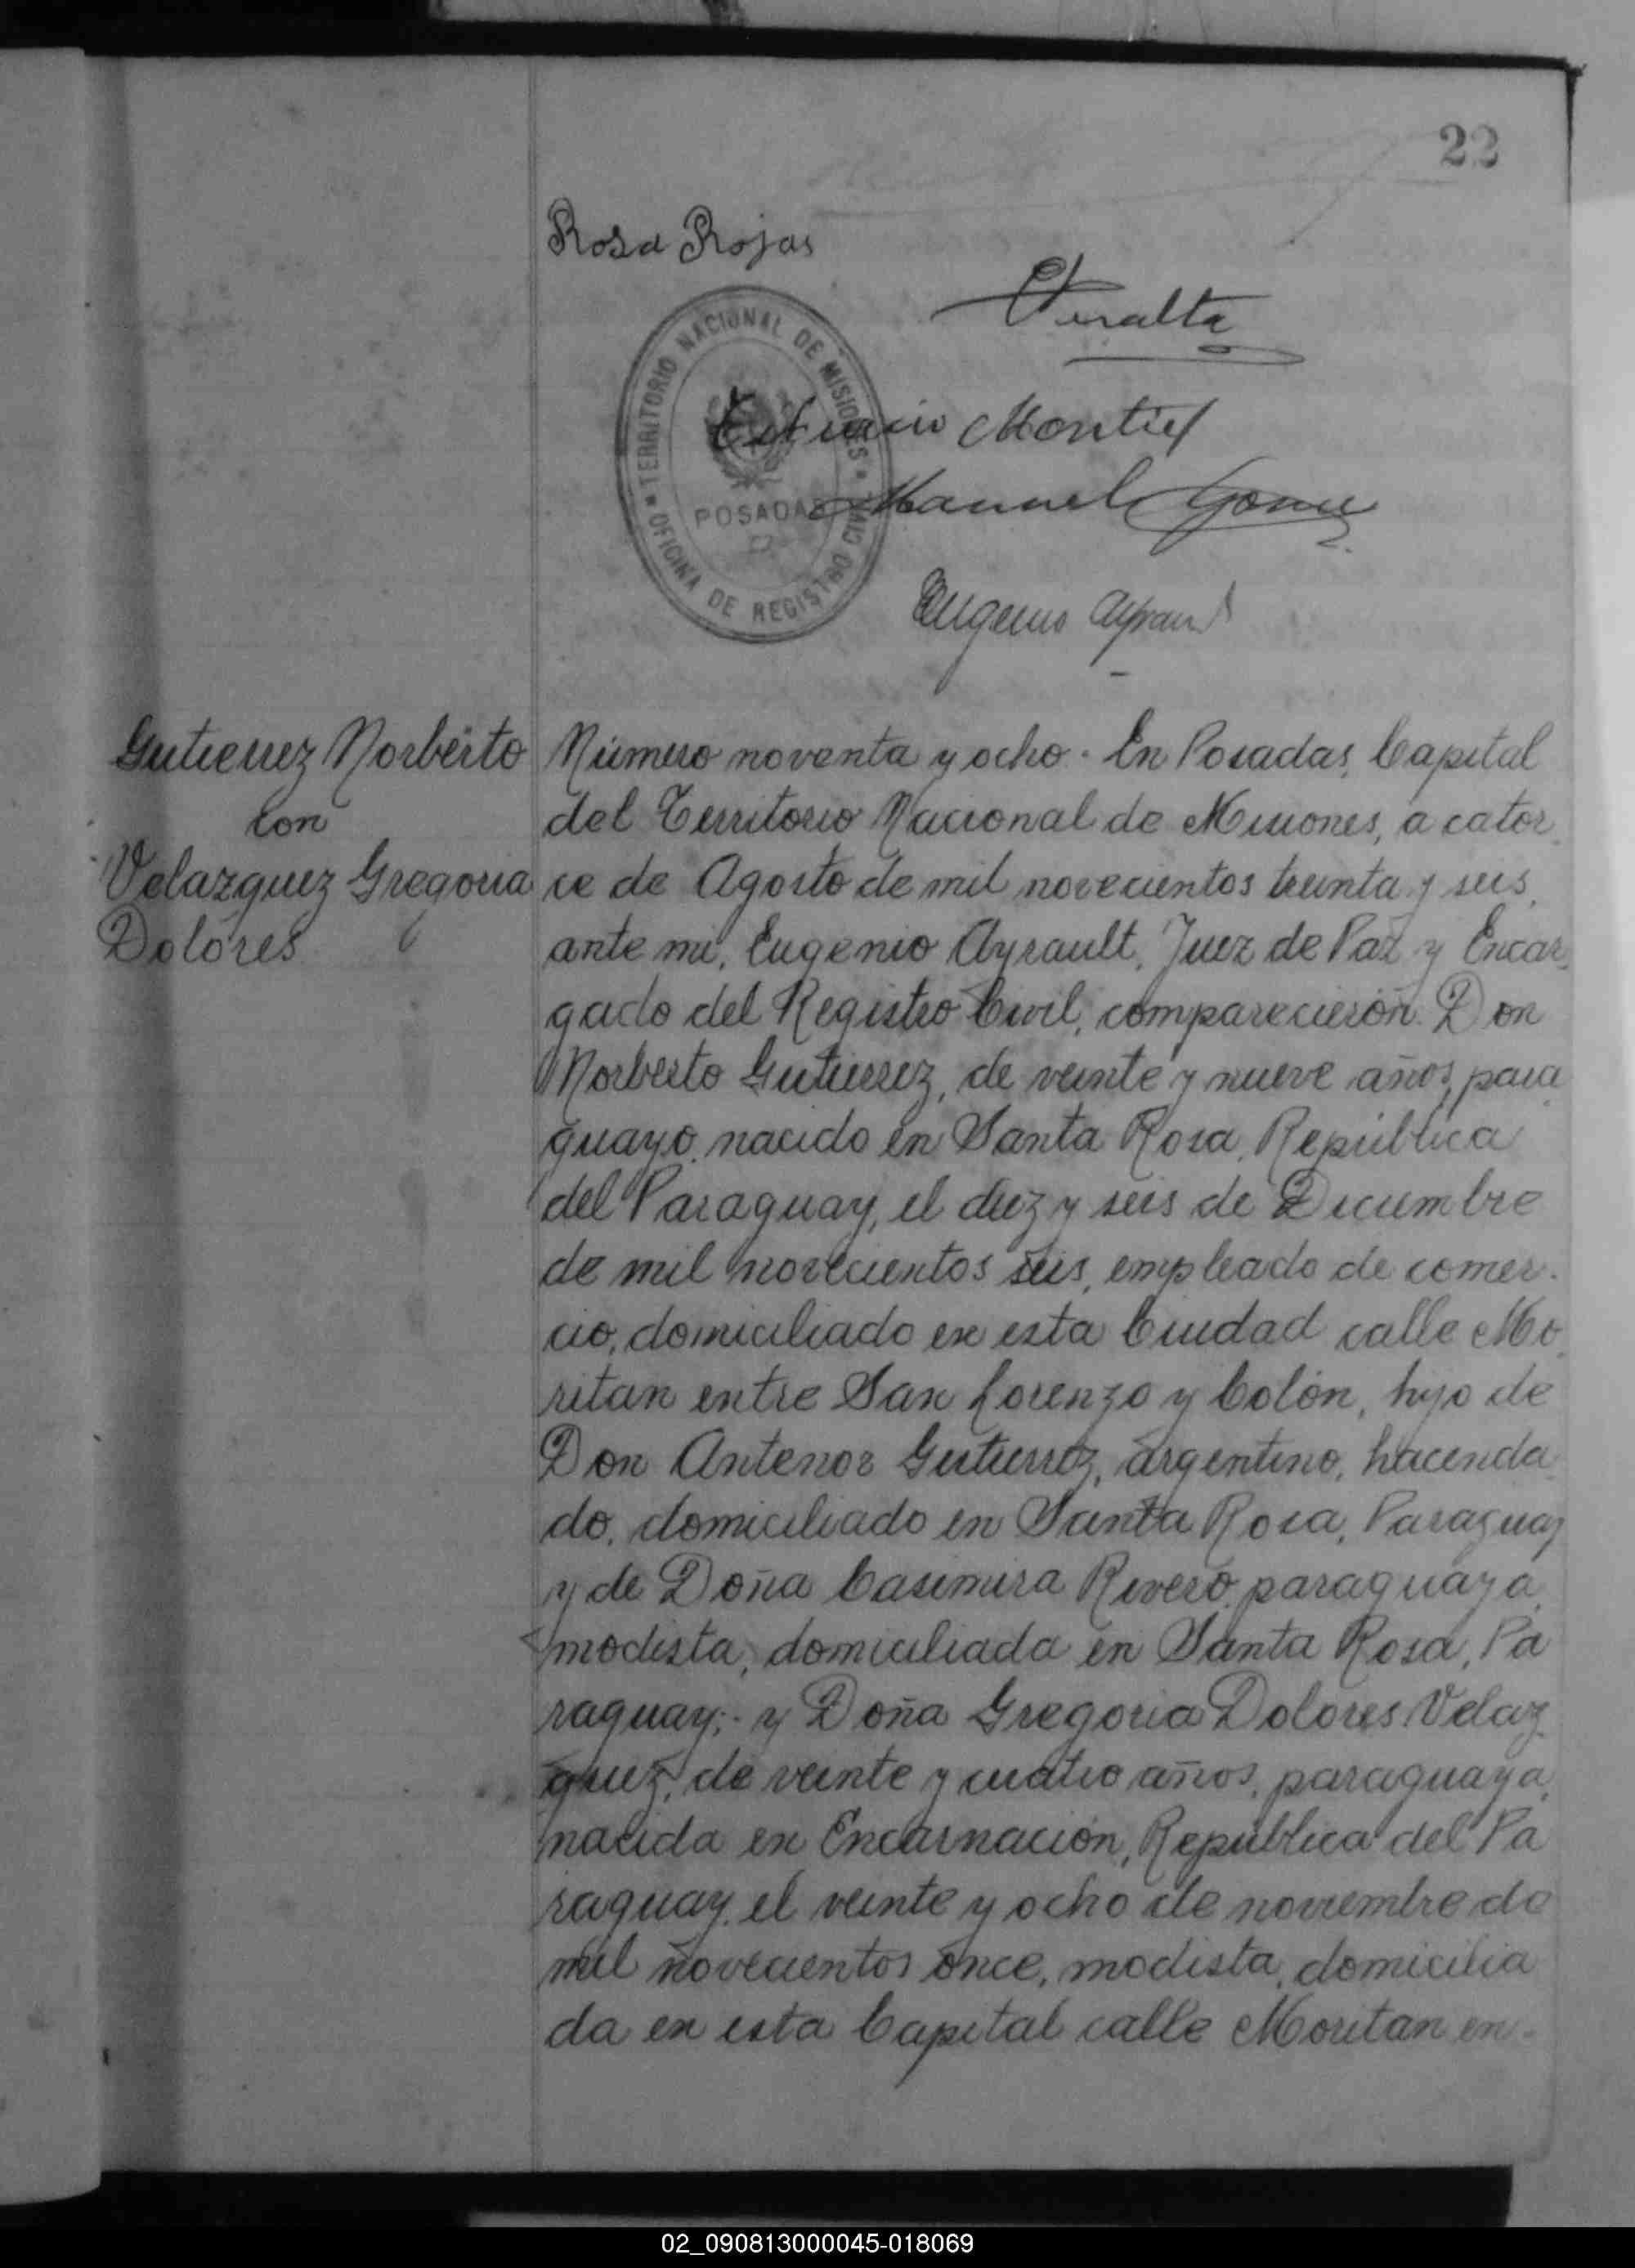 22
Rosa Rojas
Peralta
TERRITORIO NACIONAL DE MISIONES
POSADAS
OFICINA DE REGISTRO CIVIL
Montiel
Manuel Gomez
Eugenio Ayrault
Gutierrez Norberto
con
Velazquez Gregoria
Dolores
Número noventa y ocho. En Posadas, Capital
del Territorio Nacional de Misiones, a cator
ce de Agosto de mil novecientos treinta y seis,
ante mi, Eugenio Ayrault, Juez de Paz y Encar
gado del Registro Civil, comparecierón: Don
Norberto Gutierrez, de veinte y nueve años, para
guayo, nacido en Santa Rosa, República
del Paraguay, el diez y seis de Diciembre
de mil novecientos seis, empleado de comer
cio, domiciliado en esta Ciudad calle Mo
ritan entre San Lorenzo y Colón, hijo de
Don Antenor Gutierrez, argentino, hacenda
do, domiciliado en Santa Rosa, Paraguay
y de Doña Casimira Rivero, paraguaya,
modista, domiciliada en Santa Rosa, Pa
raguay;- y Doña Gregoria Dolores Velaz
quez, de veinte y cuatro años, paraguaya,
nacida en Encarnación, República del Pa
raguay, el veinte y ocho de noviembre de
mil novecientos once, modista, domicilia
da en esta Capital calle Moritan en-
02_090813000045-018069